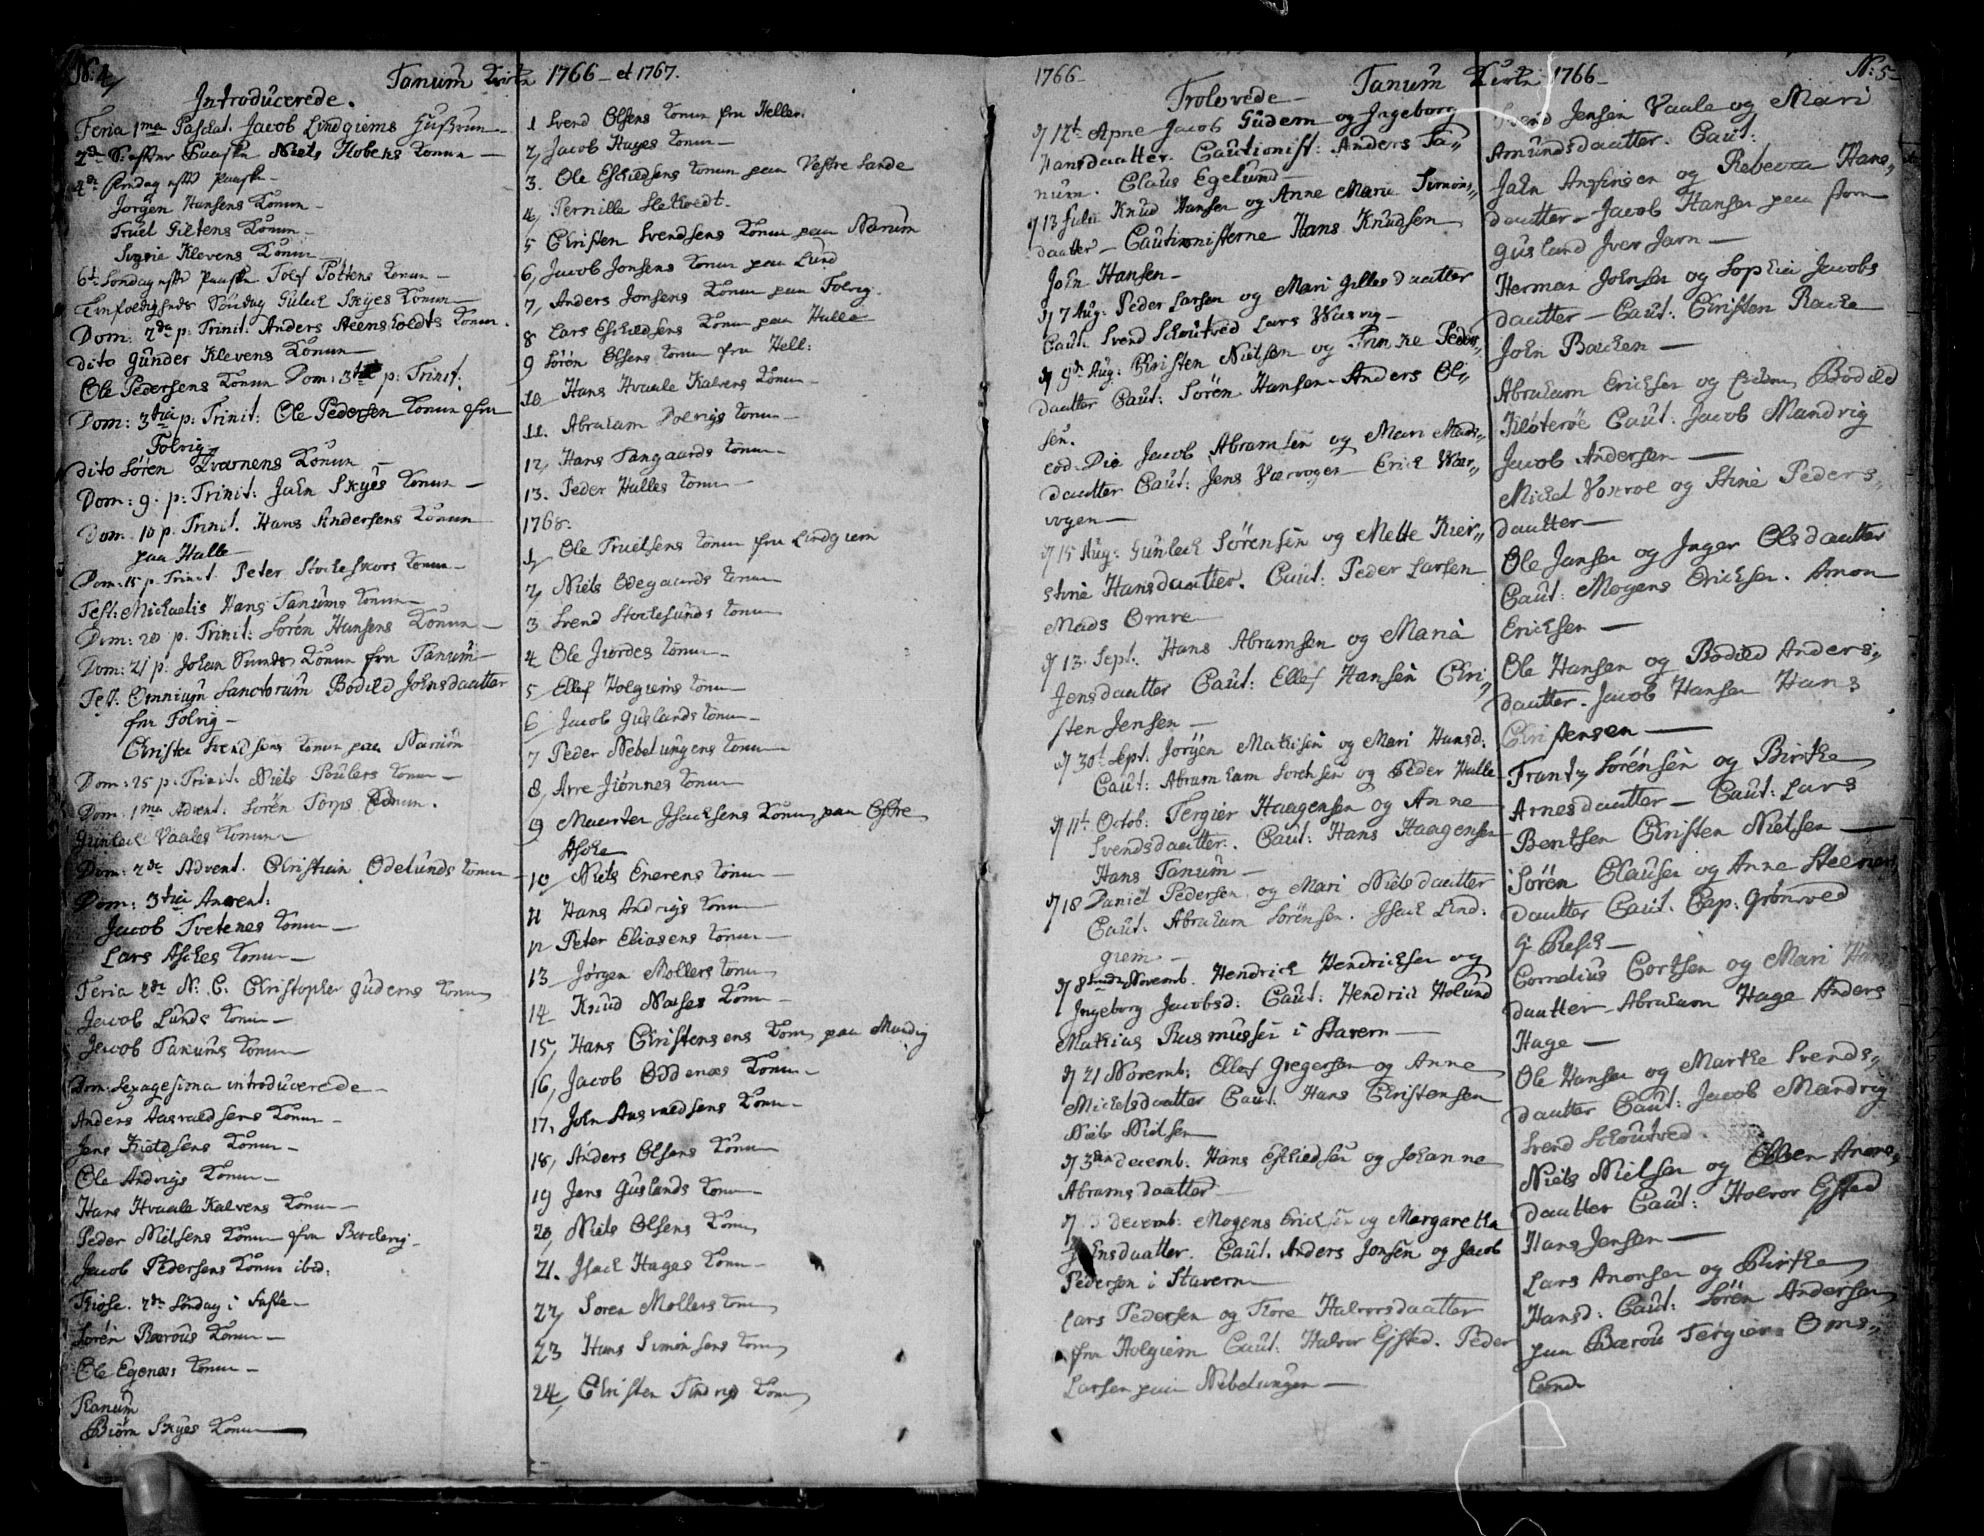 N: 4
Tanum Kirke 1766 - et 1767.
Introducerede.
Feria 1ma Paschat. Jacob Lindgiems Hustrue
2de S: efter Paaske Niels Hobeks Konne
4de Søndag efter paaske
Jørgen Hansens Konne
Truel Giltens Konne
Sigrie Klevens Konne
6te Søndag efter Paaske Tolf Pottens Konne
Trefoldigheds Søndag Guleck Skyes Konne
Dom: 2de p: Trinit. Anders Steensholdts Konne.
dito Gunder Klevens Konne
Ole Pedersens Konne Dom: 3tia p: Trinit:
Dom: 3tia p: Trinit: Ole Pedersen Konne fra
Folvig
dito Sören Qvarnens Konne
Dom: 9. p: Trinit: John Skyes Konne
Dom. 10 p. Trinit. Hans Andersens Konne
paa Halle
Dom: 15 p. Trinit. Peter Stockeskors Konne
Fest: Michaelis Hans Tanums Konne
Dom: 20 p. Trinit: Sorén Hansens Konne
Dom: 21 p: Johan Sunds Konne fra Tanum
Fest. Omnium Sanctorum Bodild Johnsdaatter
fra Folvig
Christen Svendsens Konne paa Narum
Dom: 25 p: Trinit: Niels Poulers Konne
Dom. 1ma Advent: Soren Torps Konne.
Gunleck Vaales Konne
Dom: 2de Advent. Christian Odelunds Konne
Dom: 3tia Advent:
Jacob Tvetenes Konne
Lars Askes Konne
Feria 2de N: C: Christopher Guderns Konne
Jacob Lunds Konne
Jacob Tanums Konne
Dom: Sexagesima introducerede
Anders Aasvaldsens Konne
Jens Kieldsens Konne
Ole Andvigs Konne
Hans Hvaale Kalvens Konne
Peder Nielsens Konne fra
Jacob Pedersens Konne ibid:
Kiose. 2de Söndag i Faste
Sorén Bærøus Konne
Ole Egenæs Konne
Kanum
Biörn Skyes Konne
1 Svend Olsens Konne fra Heller.
2, Jacob Hages Konne
3. Ole Eskildsens Konne paa Vestre Sande
4, Pernille Sletholdt.
5 Christen Svendsens Konne paa Narum
6, Jacob Jonsens Konne paa Lund
7, Anders Jonsens Konne paa Folvig.
8 Lars Eskildsens Konne paa Halle
9 Sörén Olsens Konne fra Hell:
10 Hans Hvaale Kalvens Konne
11. Abraham Dolvigs Konne
12, Hans Tangaards Konne
13. Peder Halles Konne
1768.
1, Ole Truelsens Konne fra Lindgiem
2, Niels Ødegaards Konne
3 Svend Stockesunds Konne
4 Ole Jordes Konne
5, Ellef Holgiems Konne
6 Jacob Guslands Konne
7 Peder Nebelungens Konne
8, Arre Jiönnes Konne
9 Maarten Isacksens Konne paa Østre
Aske
10 Niels Enerens Konne
11 Hans Andvigs Konne
12 Peter Eliasens Konne
13 Jörgen Mollers Konne
14 Knud Nalses Konne
15, Hans Christensens Konne paa Mandvig
16, Jacob Oddenæs Konne
17, John Aasvaldsens Konne
18, Anders Olsens Konne
19 Jens Guslands Konne
20, Niels Olsens Konne
21. Isack Hages Konne
22, Soren Mollers Konne
23 Hans Simonsens Konne
24, Christen Konne
1766 Tanum Kirke 1766 N: 5
Trolovede
d 12t Jacob Gudem og Ingeborg
Hansdaatter. Cautionist: Anders Ta=
num. Claus Egelund
d 13 Julii Knud Hansen og Anne Marie Simons=
daatter Cautionisterne Hans Knudsen
John Hansen
d 7 Aug: Peder Larsen og Mari Gilles daatter
Caut: Svend Schoutved Lars Wasvig
d 9de Aug: Christen Nielsen og Trinke Peders=
daatter Caut: Sören Hansen Anders Ol=
sen.
eod. Die Jacob Abramsen og Mari Mads=
daatter Caut: Jens Værvogen Erick Vær=
vogen
d 15 Aug: Gunleck Sörensen og Mette Kier=
stine Hansdaatter. Caut: Peder Larsen
Mads Omre
d 13. Sept. Hans Abramsen og Maria
Jensdaatter Caut: Ellef Hansen Chri=
sten Jensen
d 30t Sept. Jorgen Mathisen og Mari Hansd.
Caut: Abraham Sorensen og Peder Halle
d 11t Octob: Tergier Haagensen og Anne
Svendsdaatter. Caut: Hans Haagensen
Hans Tanum
d 18 Daniel Pedersen og Mari Nielsdaatter
Caut. Abraham Sörensen. Isack Lind:
giem
d 8 Novemb. Hendrick Hendricksen og
Ingeborg Jacobsd: Caut: Hendrick Holund
Mathias Rasmussen i Stavern
d 21 Novemb: Ellef Gregersen og Anne
Mickelsdaatter Caut. Hans Christensen
Niels Nielsen
d 3die decemb: Hans Eskildsen og Johanne
Abramsdaatter
d decemb: Mogens Ericksen og Margaretha
Jensdaatter. Caut. Anders Jonsen og Jacob
Pedersen i Stavern
Lars Pedersen og Tore Halvorsdaatter
fra Holgiem Caut: Halvor Efsted. Peder
Larsen paa Nebelungen
Svend Jensen Vaale og Mari
Amundsdaatter. Caut:
John Anfinsen og Rebecca Hans=
daatter Jacob Hansen paa Stor
Gusland Iver Jarn
Herman Johnsen og Sophia Jacobs
daatter Caut: Christen Racke
John Bæcken
Abraham Ericksen og Bodild
Kløterøe Caut: Jacob Mandvig
Jacob Andersen
Mickel Voxroe og Stine Peders=
daatter
Ole Jansen og Inger Olsdaatter
Caut: Mogens Ericksen. Amon
Ericksen
Ole Hansen og Bodild Anders=
daatter. Jacob Hansen Hans
Christensen
Frantz Sörensen og Birthe
Arnesdaatter Caut: Lars
Bentsen Christen Nielsen
Sören Clausen og Anne Steenens
daatter Caut. Cap: Grönvved
G: Resch
Cornelius Cortsen og Mari Hans
daatter Abraham Hage Anders
Hage
Ole Hansen og Marthe Svends=
daatter Caut: Jacob Mandvig
Svend Schoutved.
Niels Nielsen og Ellsen Anders=
daatter Caut: Halvor Efsted
Hans Jensen
Lars Anonsen og Birthe
Hansd: Caut: Sörén Andersen
paa Bærou Tergier Oms=
lund